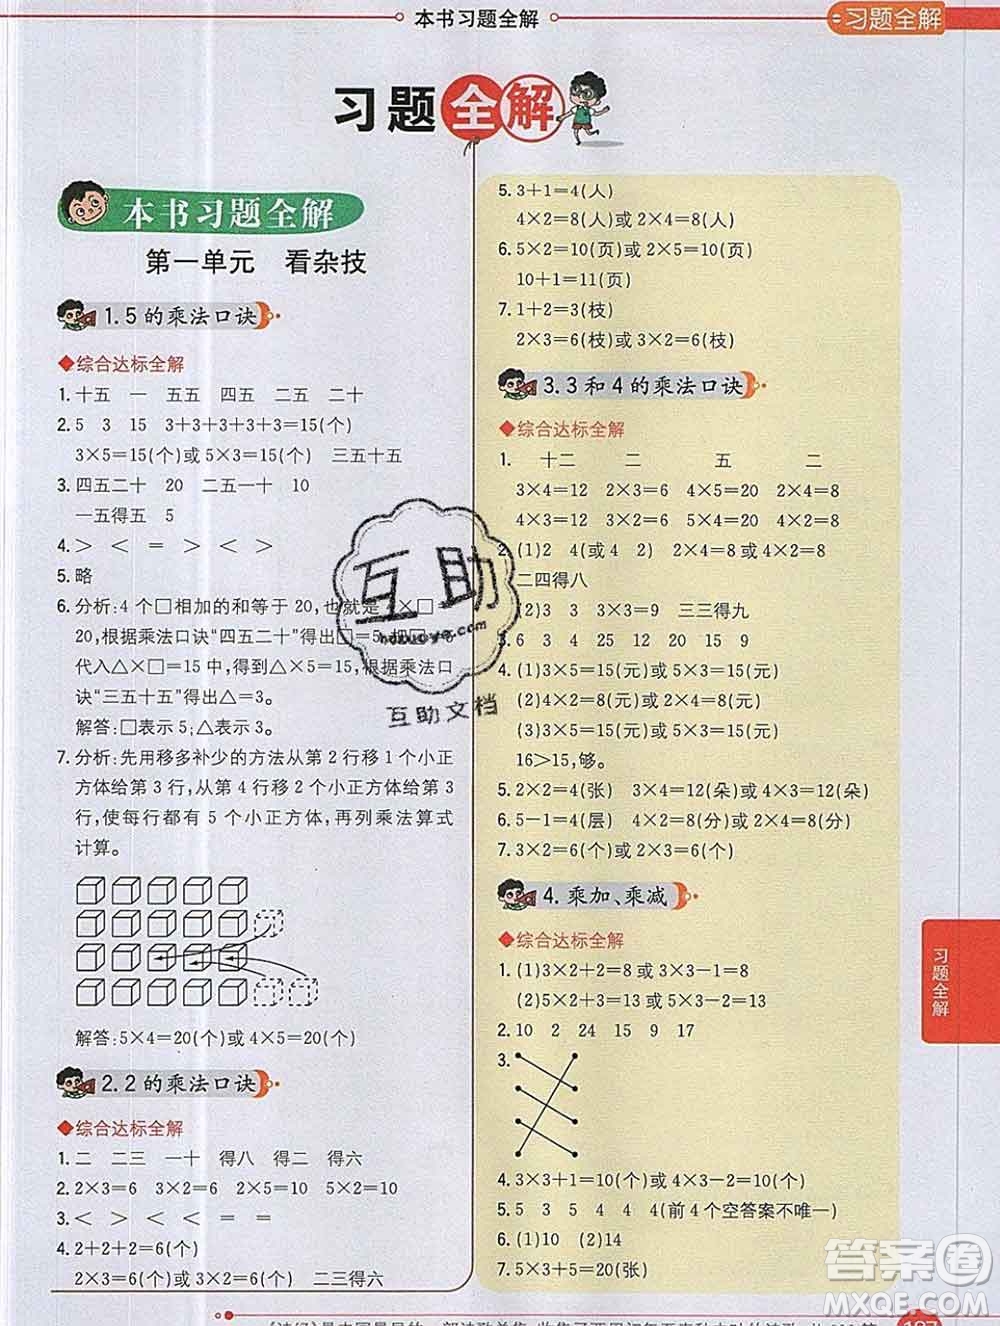 本书习题全解
习题全解
习题全解
本书习题全解
第一单元 看杂技
1.5的乘法口诀
◆综合达标全解
1.十五 一 五五 四五 二五 二十
2.5 3 15 3+3+3+3+3=15(个)
3×5=15(个)或5×3=15(个) 三五十五
3.四五二十 20 二五一十 10
一五得五 5
4.> < = > < >
5.略
6.分析:4个□相加的和等于20,也就是4×□=
20,根据乘法口诀“四五二十”得出□=5,把□=5
代入△×□=15中,得到△×5=15,根据乘法口
诀“三五十五”得出△=3。
解答:□表示5;△表示3。
7.分析:先用移多补少的方法从第2行移1个小正
方体给第3行,从第4行移2个小正方体给第3
行,使每行都有5个小正方体,再列乘法算式
计算。
解答:5×4=20(个)或4×5=20(个)
2.2的乘法口诀
◆综合达标全解
1.二 二三 一十 得八 得二 得六
2.2×3=6 3×2=6 2×5=10 5×2=10
3.< > < < = =
4.2+2+2=6(个)
2×3=6(个)或3×2=6(个) 二三得六
5.3+1=4(人)
4×2=8(人)或2×4=8(人)
6.5×2=10(页)或2×5=10(页)
10+1=11(页)
7.1+2=3(枝)
2×3=6(枝)或3×2=6(枝)
3.3和4的乘法口诀
◆综合达标全解
1. 十二 二 五 二
3×4=12 2×3=6 4×5=20 2×4=8
4×3=12 3×2=6 5×4=20 4×2=8
2.(1)2 4(或4 2) 2×4=8或4×2=8
二四得八
(2)3 3 3×3=9 三三得九
3.6 4 25 12 20 15 9
4.(1)3×5=15(元)或5×3=15(元)
(2)4×2=8(元)或2×4=8(元)
(3)3×5=15(元)或5×3=15(元)
16>15,够。
5.2×2=4(张) 3×4=12(朵)或4×3=12(朵)
6.5-1=4(层) 4×2=8(分)或2×4=8(分)
7.3×2=6(个)或2×3=6(个)
4.乘加、乘减
◆综合达标全解
1.(1)3×2+2=8或3×3-1=8
(2)5×2+3=13或5×3-2=13
2.10 2 24 15 9 17
3.
4.3×3+1=10(个)或4×3-2=10(个)
5.5 3 5 4 4 4(前4个空答案不唯一)
6.(1)10 (2)14
7.5×3+5=20(张)
习题全解
互助
互助文档
答案圈
MXQE.COM